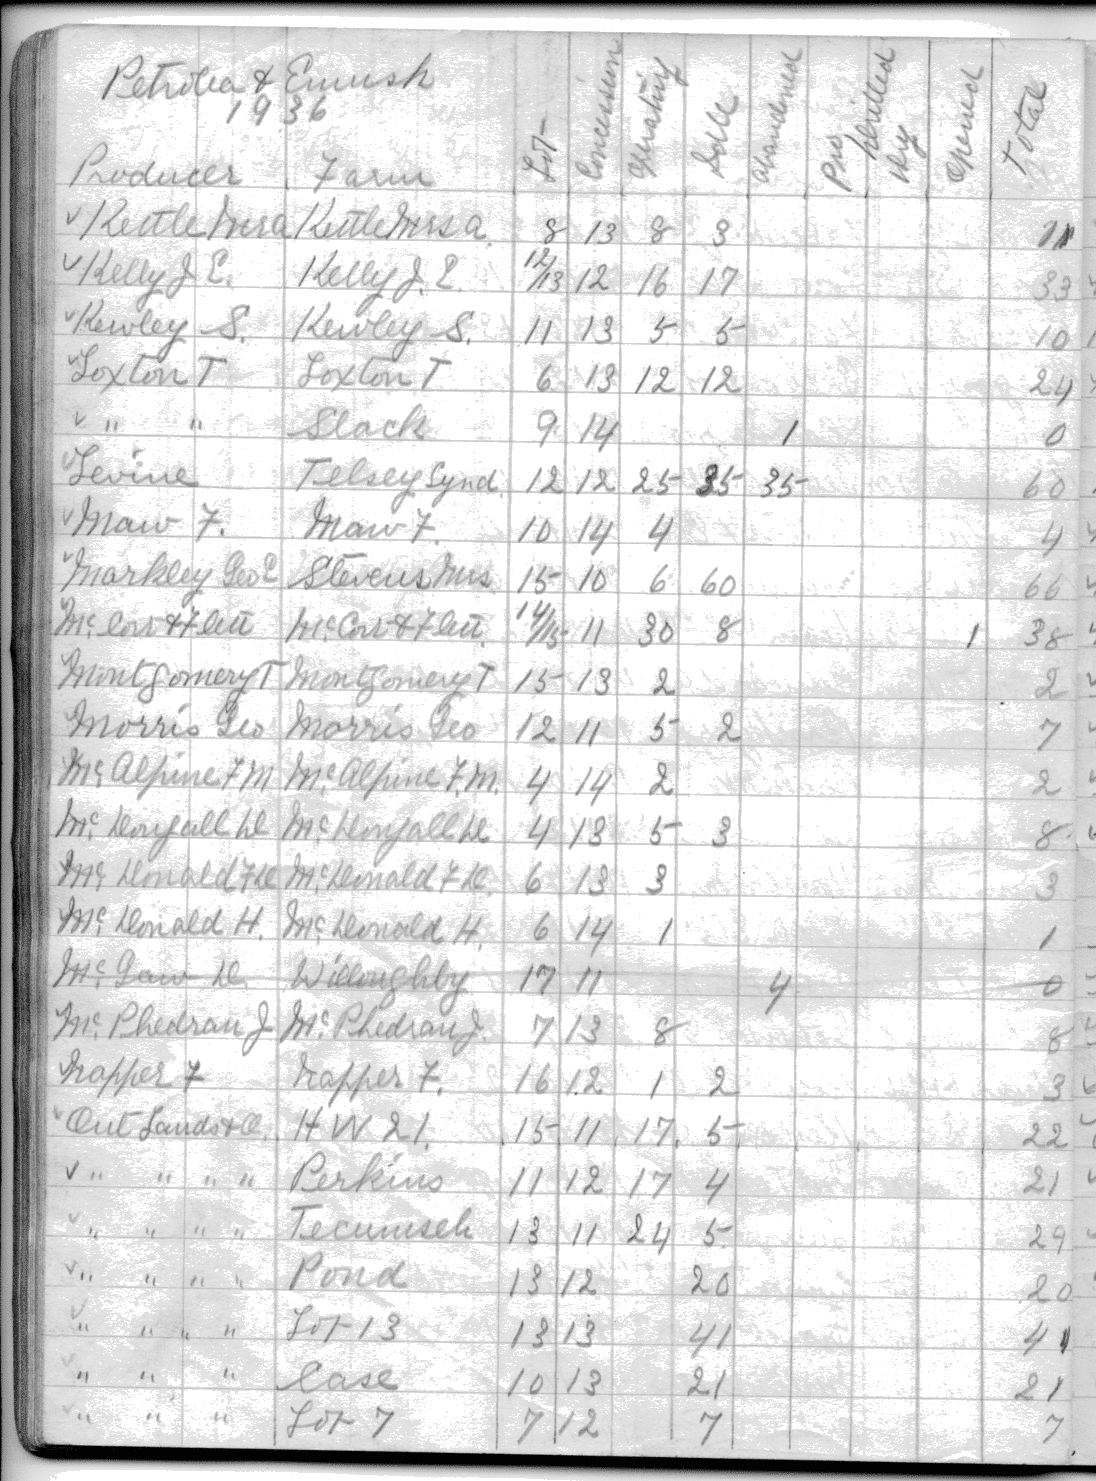 Petrolia & Ennisk
1936
Producer Farm Lot Concession Operating Idle Abandoned Pro Drilled Dry Opened Total
✓ Kettle Mrs A Kettle Mrs A. 8 13 8 3 11
✓ Kelly J. E. Kelly J. E. 12/13 12 16 17 33
✓ Kewley S. Kewley S. 11 13 5 5 10
✓ Loxton T Loxton T 6 13 12 12 24
✓ " " Slack 9 14 1 0
✓ Levine Telsey Synd. 12 12 25 35 35 60
✓ Maw F. Maw F. 10 14 4 4
✓ Markley Geo E Stevens Mrs 15 10 6 60 66
Mc. Cort & Flett Mc. Cort & Flett. 14/15 11 30 8 1 38
Montgomery T Montgomery T 15 13 2 2
Morris Geo Morris Geo 12 11 5 2 7
Mc Alpine F M Mc Alpine F. M. 4 14 2 2
Mc. Dougall D Mc Dougall D 4 13 5 3 8
Mc Donald F D Mc Donald F D. 6 13 3 3
Mc. Donald H. Mc. Donald H. 6 14 1 1
Mc. Gaw D. Willoughby 17 11 4 0
Mc. Phedran J Mc. Phedran J. 7 13 8 8
Napper F Napper F. 16 12 1 2 3
✓ Out Lands & O. H W 21. 15 11 17 5 22
✓ " " " " Perkins 11 12 17 4 21
✓ " " " " Tecumseh 13 11 24 5 29
✓ " " " " Pond 13 12 20 20
✓ " " " " Lot 13 13 13 41 41
✓ " " " Case 10 13 21 21
✓ " " " Lot 7 7 12 7 7